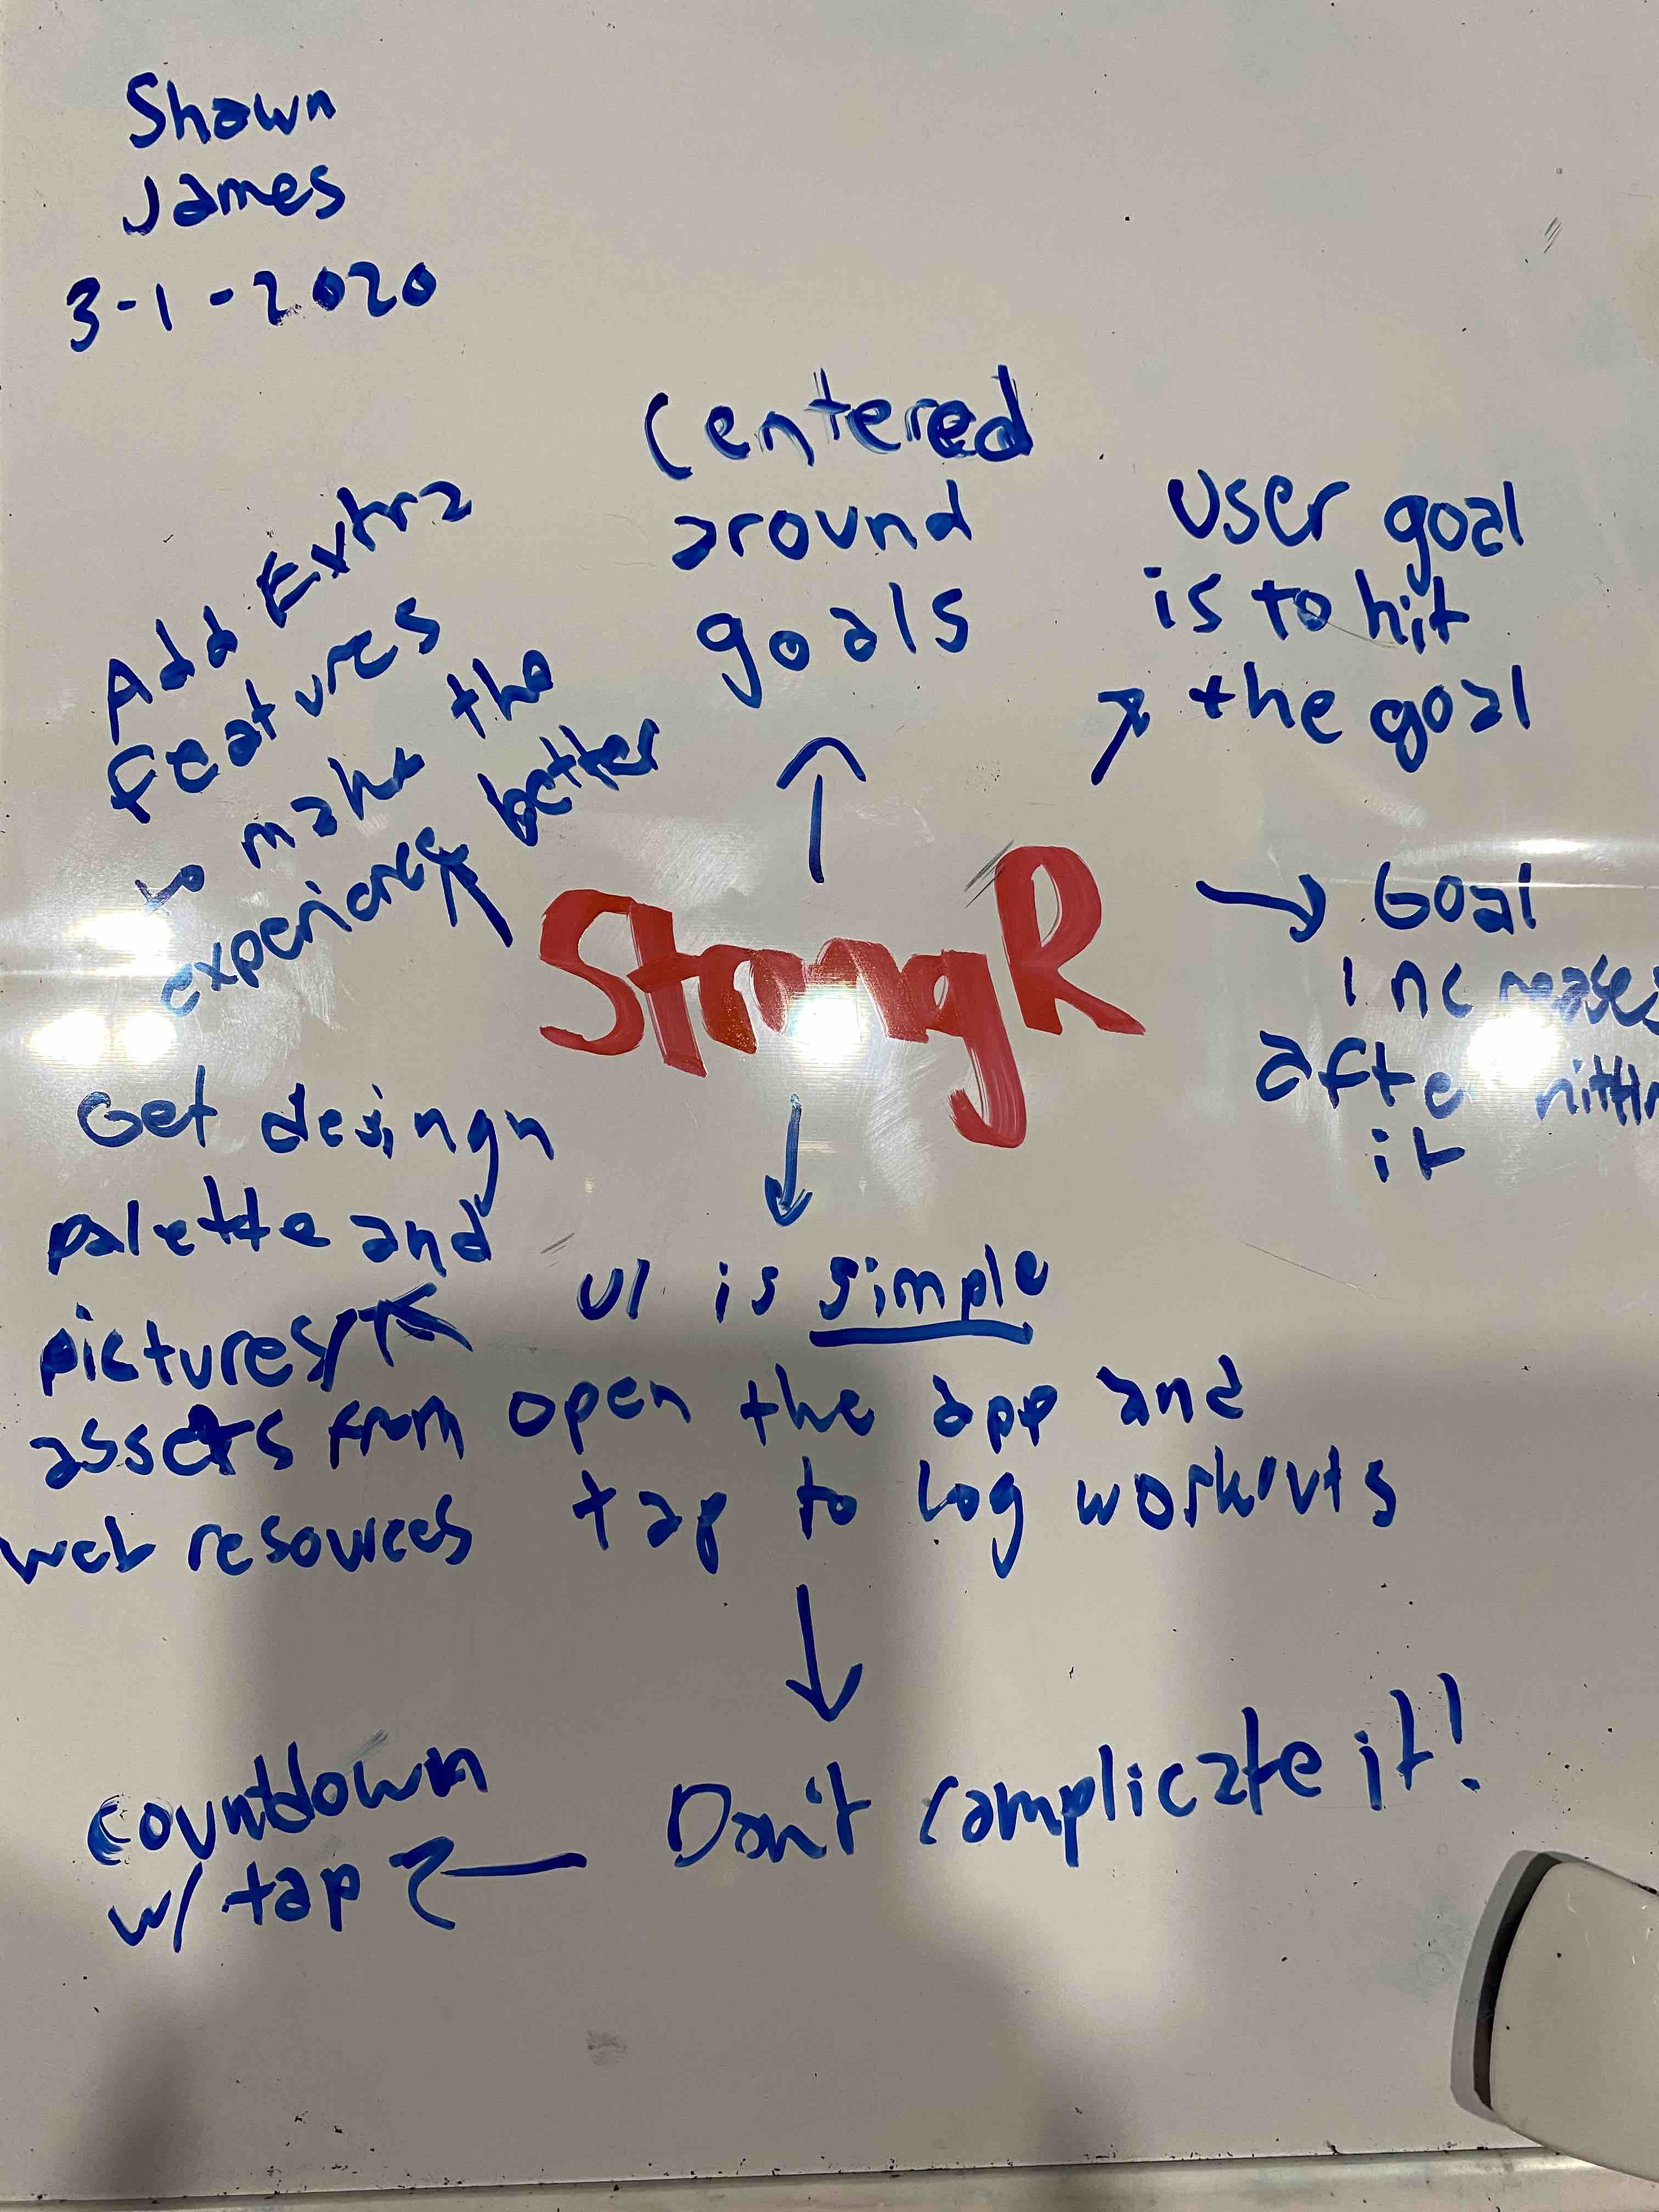 Shawn
James
3-1-2020
Centered
around
goals
Add Extra
features
to make the
experience better
User goal
is to hit
the goal
StrongR
Goal
increases
after hitting
it
Get desingn
palette and
pictures/
assets from
web resources
UI is simple
open the app and
tap to log workouts
Don't complicate it!
countdown
w/ tap